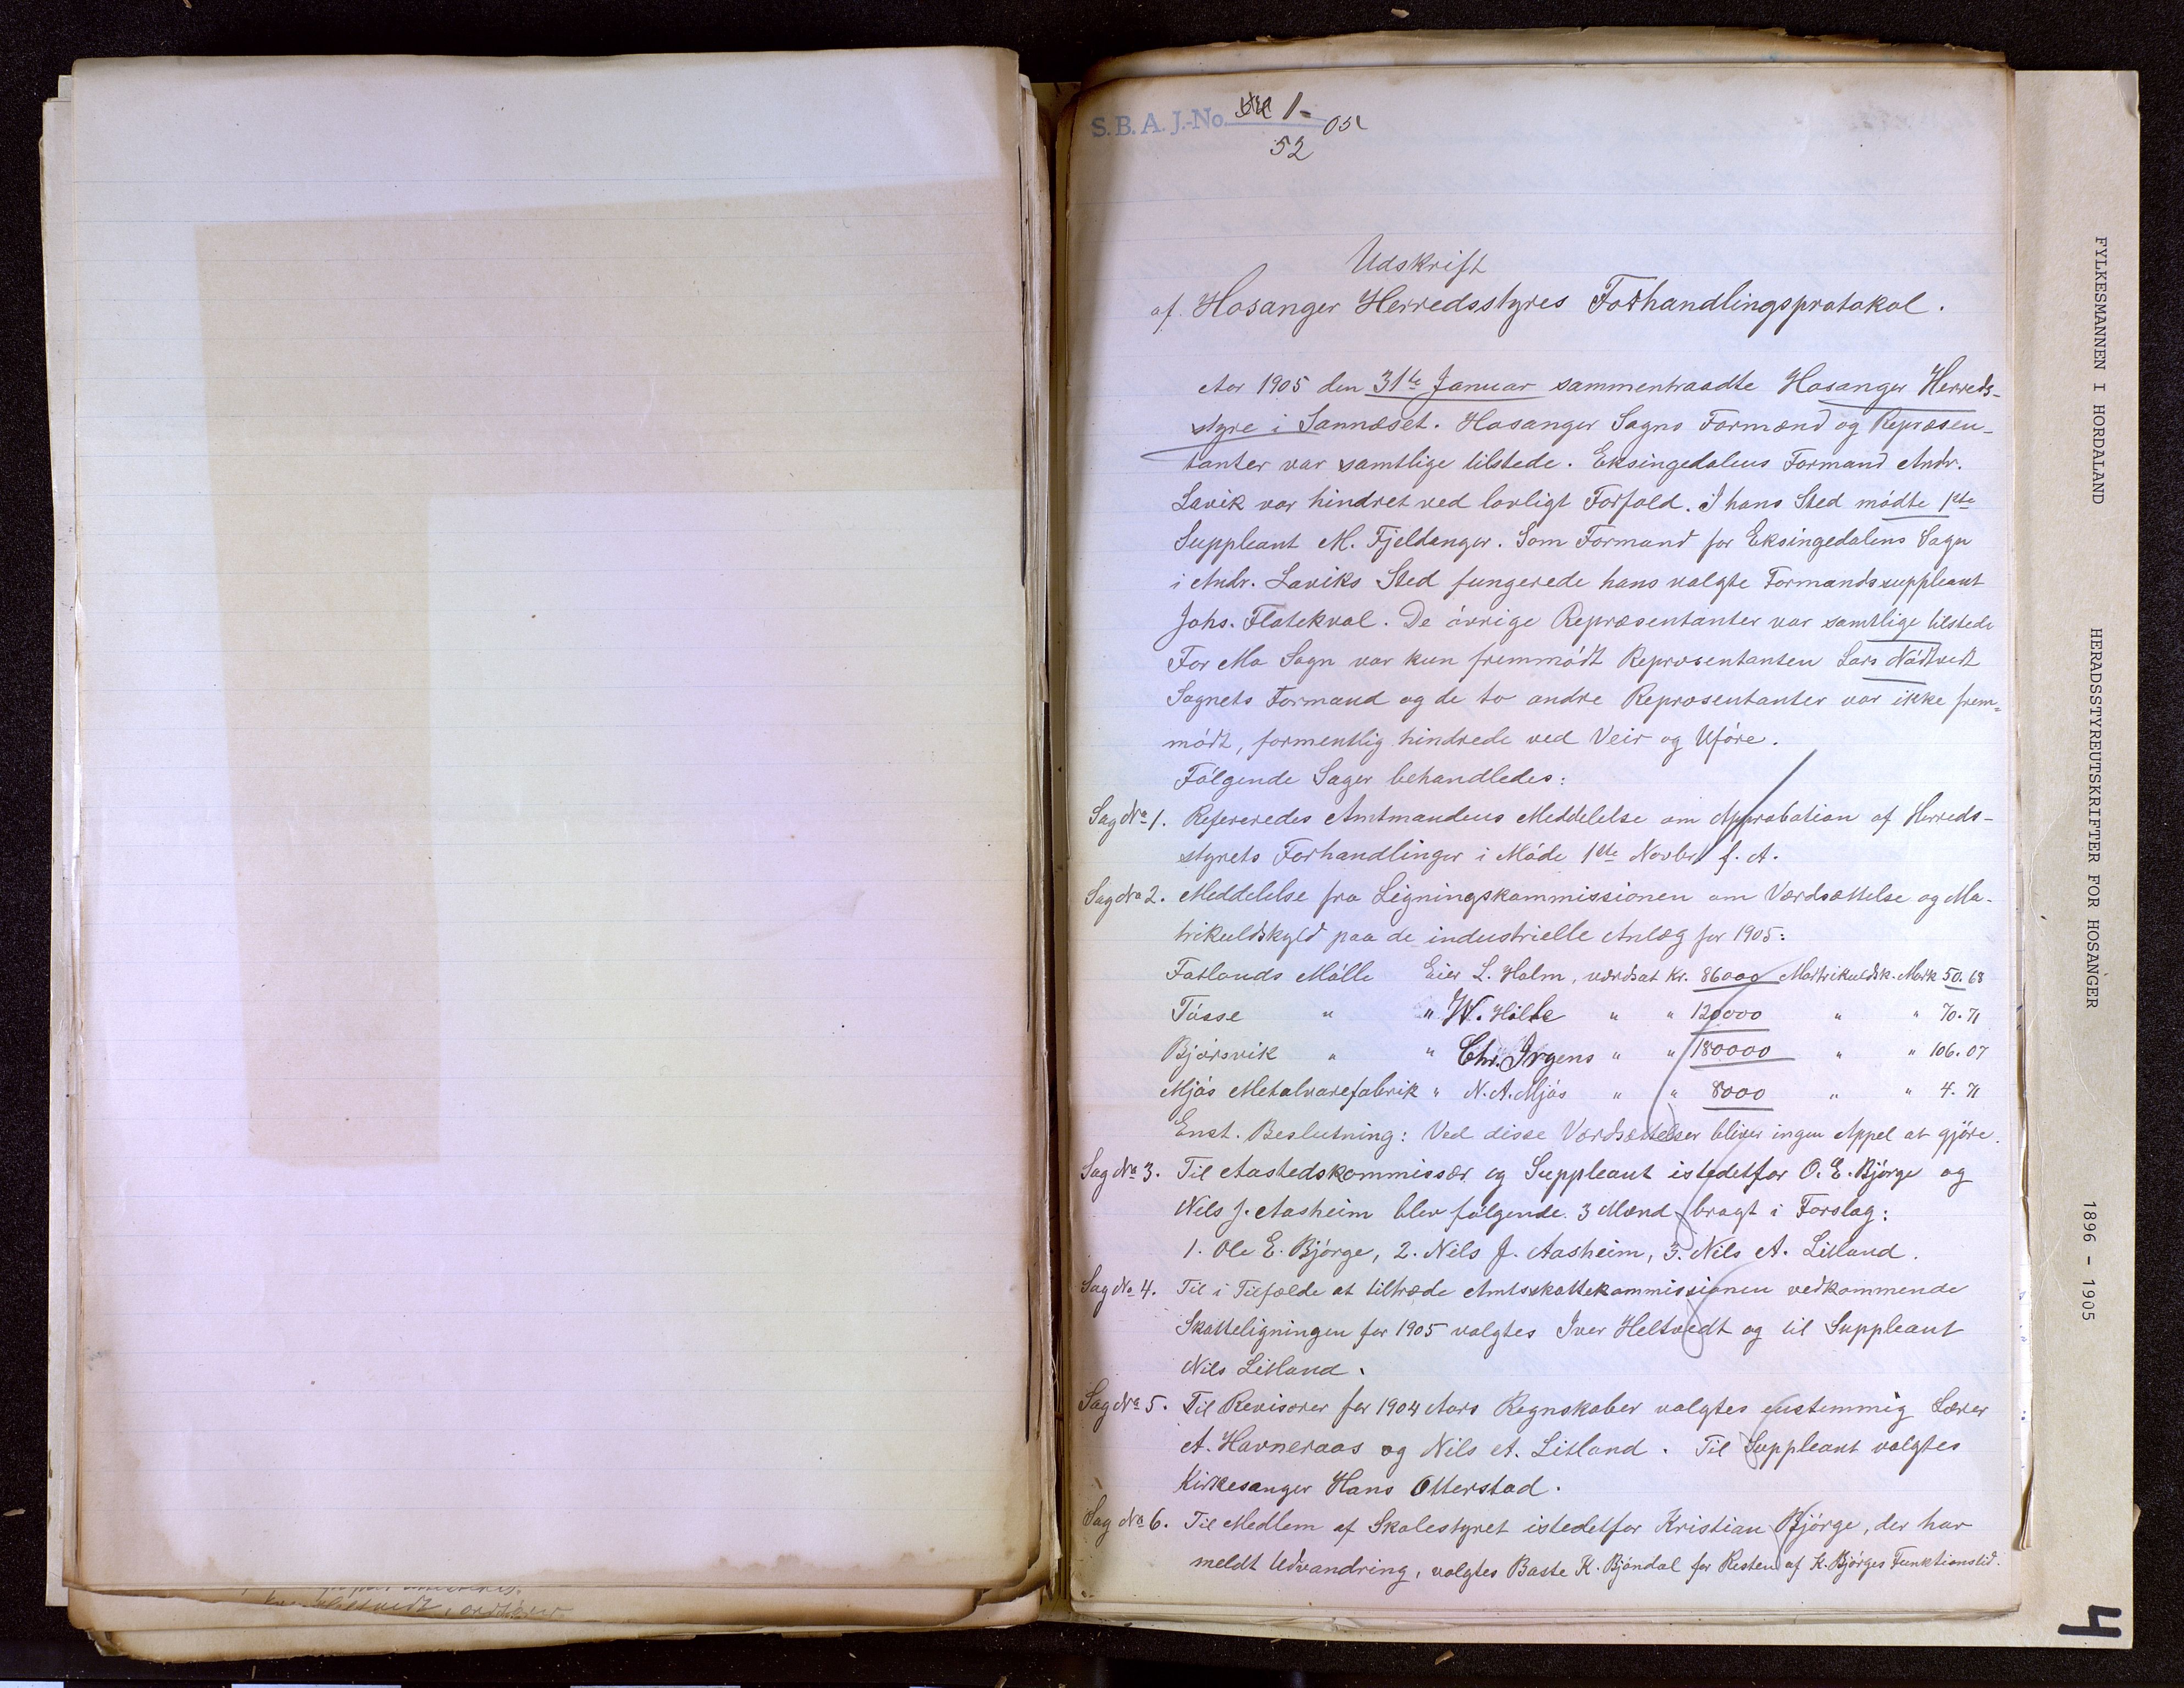 S. B. A. J.-No. 1- 05
52
Udskrift
af Hosanger Herredsstyres Forhandlingsprotokol.
Aar 1905 den 31te Januar sammentraadte Hosanger Herreds-
styre i Sannæset. Hosanger Sogns Formænd og Repræsen-
tanter var samtlige tilstede. Eksingedalens Formand Andr.
Lavik var hindret ved lovligt Forfald. I hans Sted mødte 1ste
Suppleant M. Fjeldanger. Som Formand for Eksingedalens Sogn
i Andr. Laviks Sted fungerede hans valgte Formandssuppleant
Johs. Flatekval. De øvrige Repræsentanter var samtlige tilstede
For Mo Sogn var kun fremmødt Repræsentanten Lars Nødtvedt
Sognets Formand og de to andre Repræsentanter var ikke frem-
mødt, formentlig hindrede ved Veir og Uføre.
Følgende Sager behandledes:
Sag No 1. Refereredes Amtmandens Meddelelse om Approbation af Herreds-
styrets Forhandlinger i Møde 1ste Novbr. f. A.
Sag No 2. Meddelelse fra Ligningskommissionen om Værdsættelse og Ma-
trikulskyld paa de industrielle Anlæg for 1905:
Fatlands Mølle Eier L. Holm, værdsat Kr. 86000 Matrikulsk. Mark 50.68
Tøsse " " W. Hille " " 120000 " " 70.71
Bjørsvik " " Chr. Irgens " " 180000 " " 106.07
Mjøs Metalvarefabrik " N. A. Mjøs " " 8000 " " 4.71
Enst. Beslutning: Ved disse Værdsættelser bliver ingen Appel at gjøre.
Sag No 3. Til Aastedskommissær og Suppleant istedetfor O. E. Bjørge og
Nils J. Aasheim blev følgende 3 Mænd bragt i Forslag:
1. Ole E. Bjørge, 2. Nils J. Aasheim, 3. Nils A. Litland.
Sag No 4. Til i Tilfælde at tiltræde Amtsskattekommissionen vedkommende
Skatteligningen for 1905 valgtes Iver Heltvedt og til Suppleant
Nils Litland.
Sag No 5. Til Revisorer for 1904 Aars Regnskaber valgtes enstemmig Lærer
A. Havneraas og Nils A. Litland. Til Suppleant valgtes
Kirkesanger Hans Otterstad.
Sag No 6. Til Medlem af Skolestyret istedetfor Kristian Bjørge, der har
meldt Udvandring, valgtes Baste K. Bjøndal for Resten af K. Bjørges Funktionstid.
FYLKESMANNEN I HORDALAND
HERADSSTYREUTSKRIFTER FOR HOSANGER
1896 - 1905
4